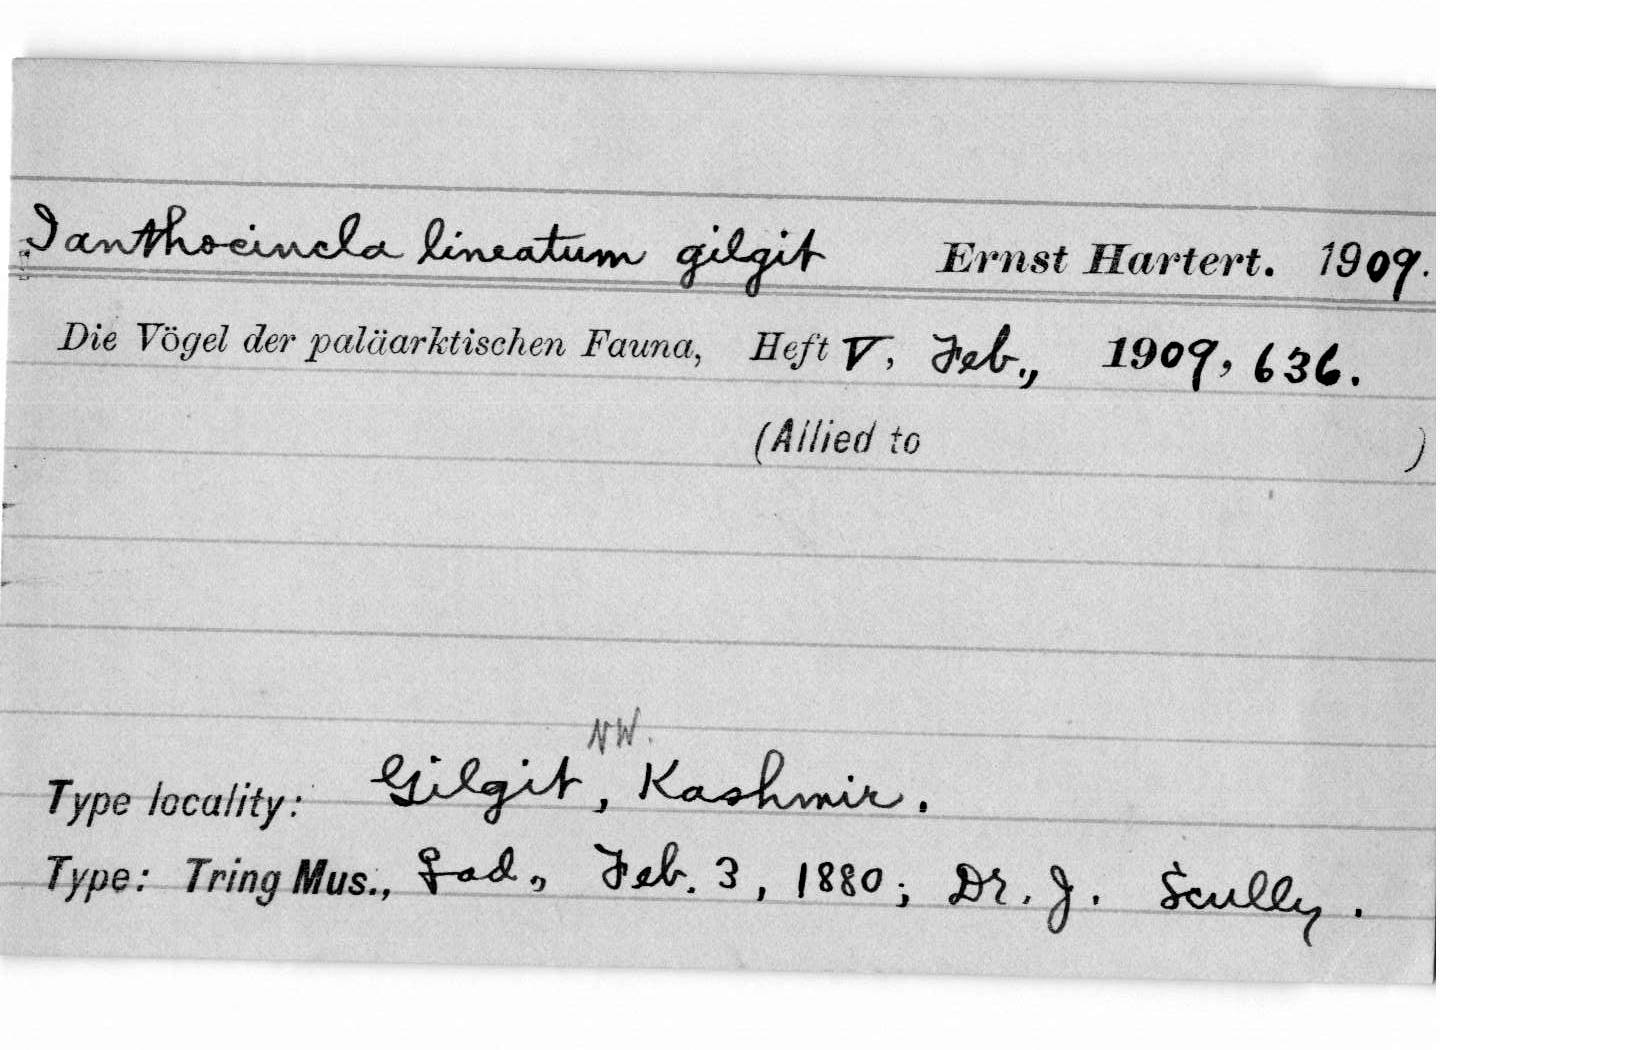 Ianthocincla lineatum gilgit Ernst Hartert. 1909.
Die Vögel der paläarktischen Fauna, Heft V, Feb., 1909, 636.
(Allied to )
NW.
Type locality: Gilgit, Kashmir.
Type: Tring Mus., ♀ad., Feb. 3, 1880; Dr. J. Scully.